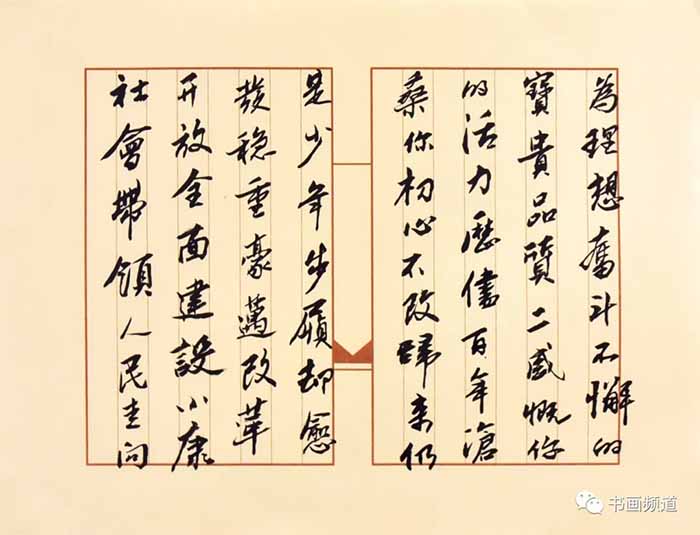 为理想奮斗不懈的
寶貴品質二感慨你
的活力歷儘百年滄
桑你初心不改歸來仍
是少年步履却愈
發稳重豪邁改革
开放全面建設小康
社會帶領人民走向
书画频道